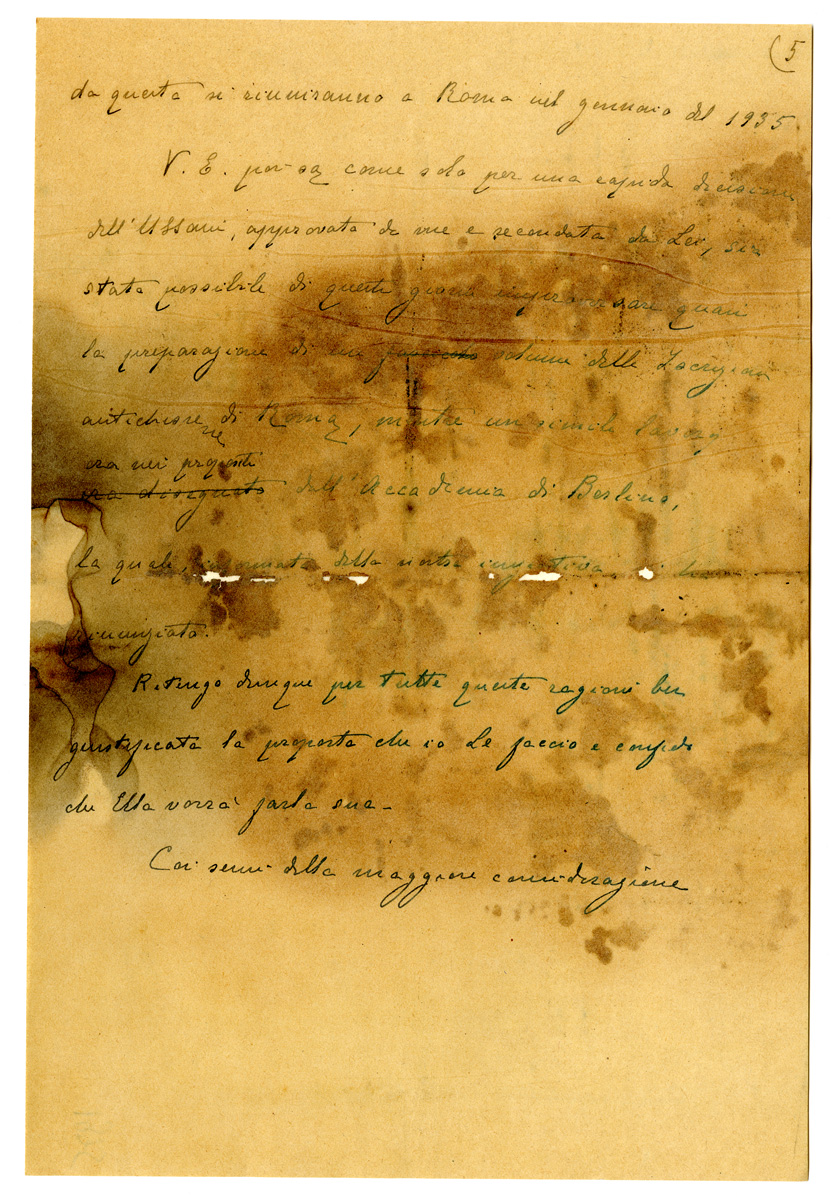 (5
da questa si riuniranno a Roma nel gennaio del 1935.
V. E. poi sa come solo per una rapida decisione
dell'Ussani, approvata da me e secondata da Lei, sia
stata possibile di questi giorni improvvisare quasi
la preparazione di un fascicolo volume delle Iscrizioni
antichissime di Roma, mentre un simile lavoro
era nei progetti
era disegnato dell'Accademia di Berlino,
la quale, informata della nostra iniziativa, vi ha
rinunziato.
Ritengo dunque per tutte queste ragioni ben
giustificata la proposta che io Le faccio e confido
che Ella vorrà farla sua –
Coi sensi della maggiore considerazione